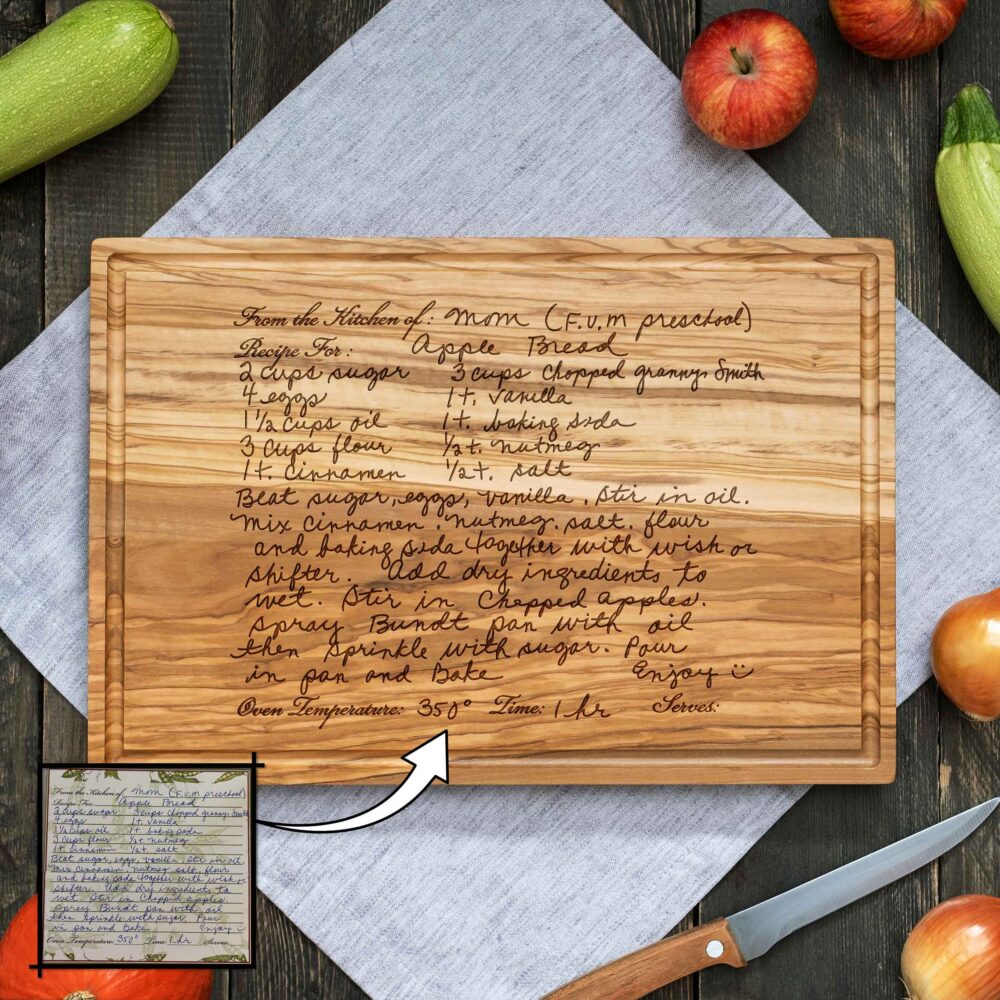 From the Kitchen of: Mom (F.V.M preschool)
Recipe For: Apple Bread
2 cups sugar 3 cups Chopped granny Smith
4 eggs 1 t. vanilla
1 1/2 cups oil 1 t. baking soda
3 Cups flour 1/2 t. nutmeg
1 t. Cinnamen 1/2 t. salt
Beat sugar, eggs, vanilla. Stir in oil.
Mix Cinnamen. nutmeg. salt. flour
and baking soda together with wish or
shifter. Add dry ingredients to
wet. Stir in Chopped apples.
Spray Bundt pan with oil
then sprinkle with sugar. Pour
in pan and Bake Enjoy
Oven Temperature: 350° Time: 1 hr Serves:
From the Kitchen of Mom (F.V.M preschool)
Recipe For: Apple Bread
2 cups sugar 3 cups Chopped granny Smith
4 eggs 1 t. vanilla
1 1/2 cups oil 1 t. baking soda
3 Cups flour 1/2 t. nutmeg
1 t. Cinnamen 1/2 t. salt
Beat sugar, eggs, vanilla. Stir in oil.
Mix Cinnamen nutmeg salt. flour
and baking soda together with wish or
shifter. Add dry ingredients to
wet. Stir in Chopped apples.
Spray Bundt pan with oil
then sprinkle with sugar. Pour
in pan and Bake Enjoy
Oven Temperature: 350° Time: 1 hr Serves: